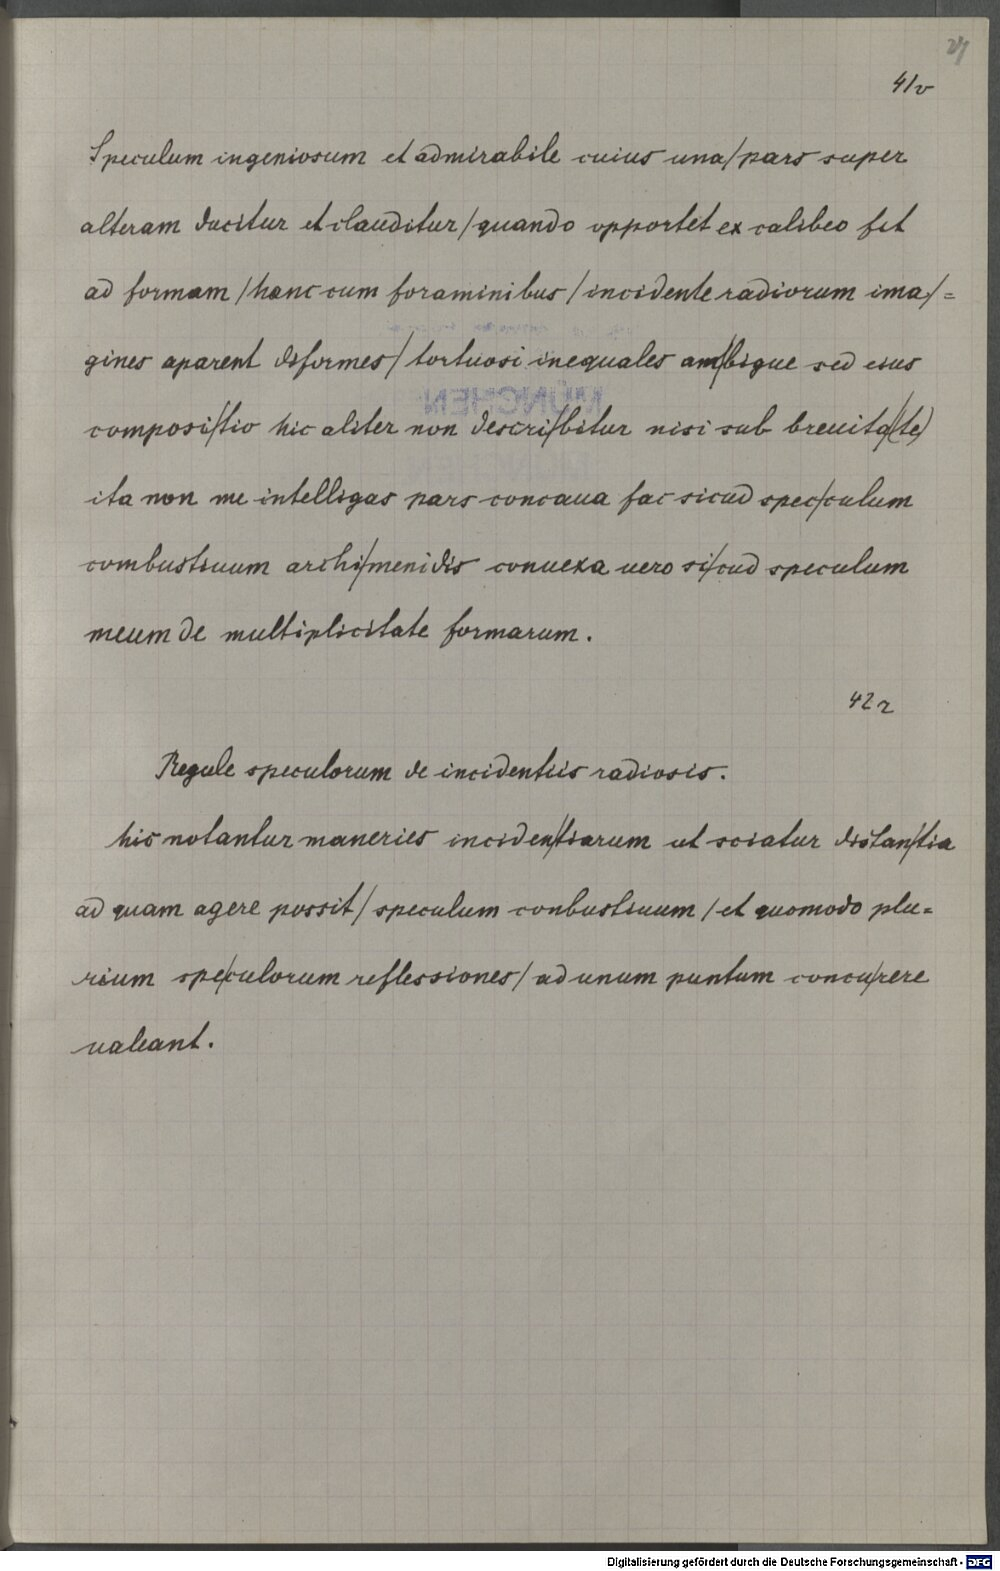 41v
Speculum ingeniosum et admirabile cuius una/pars super
alteram ducitur et clauditur/quando opportet ex calibeo fit
ad formam/hanc cum foraminibus/incidente radiorum ima/=
gines aparent disformes/tortuosi inequales am/bigue sed eius
composi/tio hic aliter non descri/bitur nisi sub breuita/(te)
ita non me intelligas pars concaua fac sicud spec/culum
combustiuum archi/menidis conuexa uero si/cud speculum
meum de multiplicitate formarum.
42r
Regule speculorum de incidentiis radiosis.
hic notantur maneries inciden/tiarum ut sciatur distan/tia
ad quam agere possit/speculum conbustiuum/et quomodo plu=
rium spe/culorum reflessiones/ad unum puntum concu/rere
ualeant.
MÜNCHEN
Digitalisierung gefördert durch die Deutsche Forschungsgemeinschaft - DFG